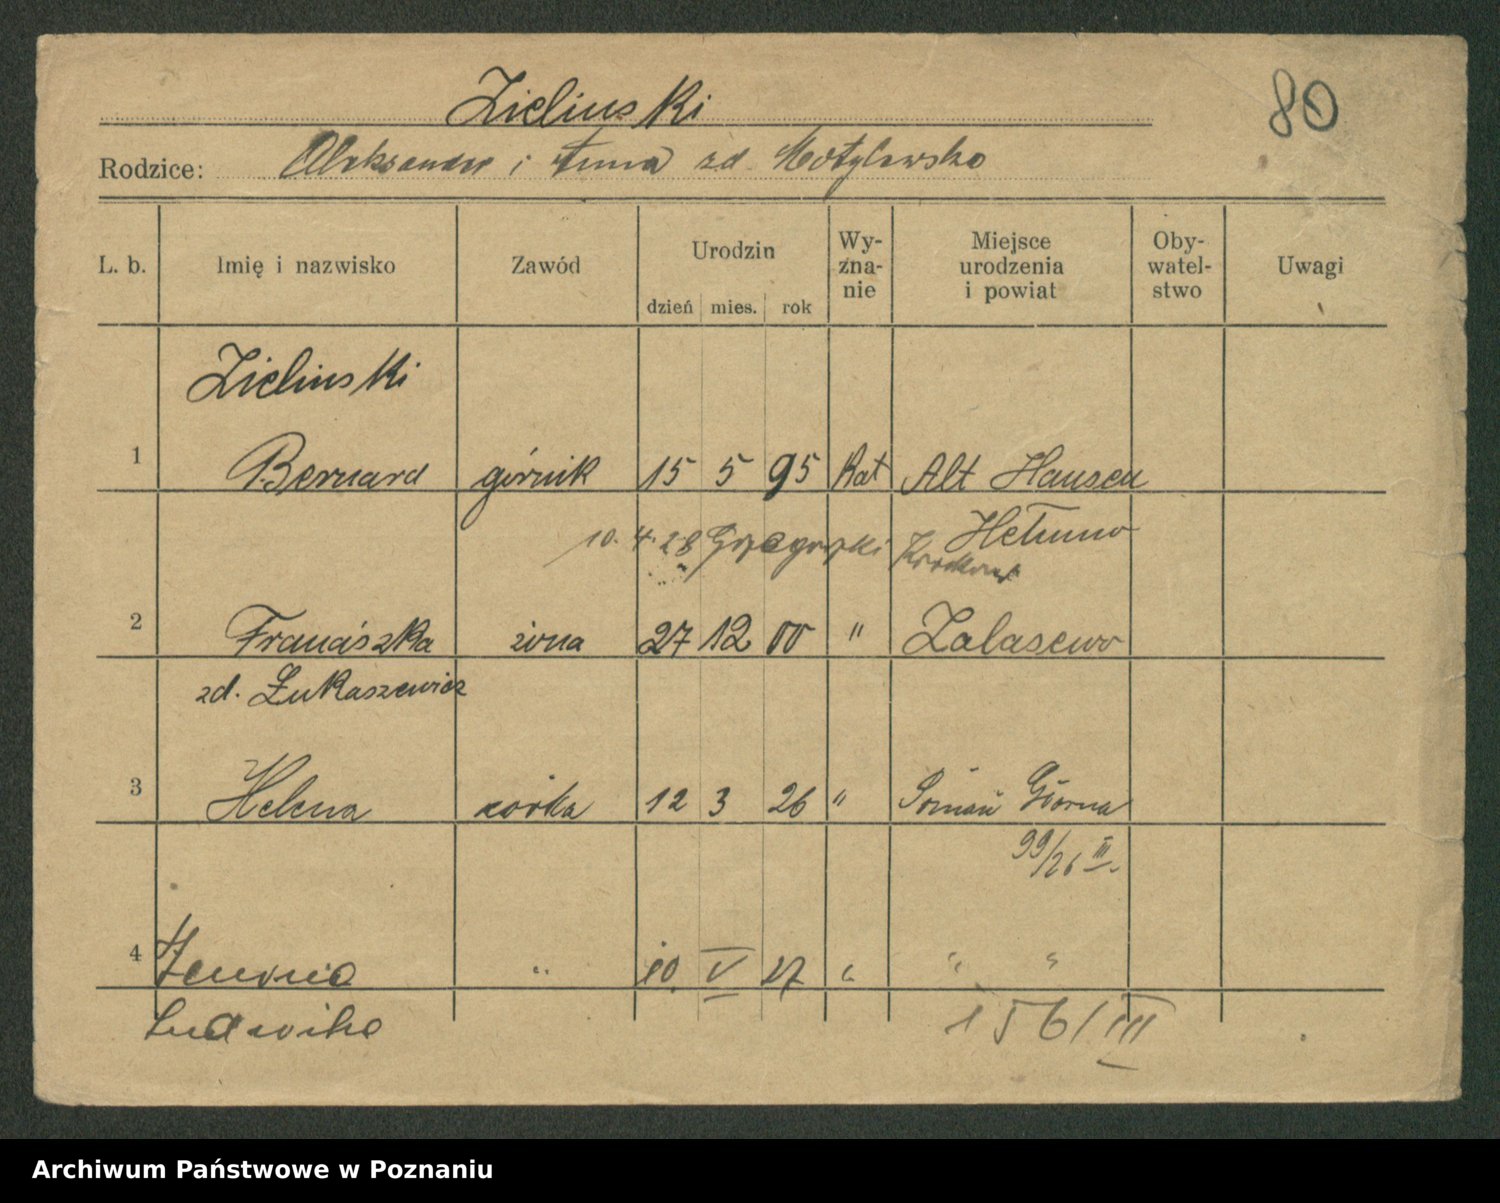 Zielinski
80
Rodzice: Aleksander i Anna zd Motylewska
L. b. Imię i nazwisko Zawód Urodzin dzień mies. rok Wy-zna-nie Miejsce urodzenia i powiat Oby-watel-stwo Uwagi
Zielinski
1 Bernard górnik 15 5 95 Kat Alt Hausen
10. 4. 28 Hełmno
2 Franciszka żona 27 12 00 " Zalasewo
zd. Łukaszewicz
3 Helena córka 12 3 26 " Poznań Górna
99/26 III
4 " 10. V 27 " " "
Ludwika
156/III
Archiwum Państwowe w Poznaniu